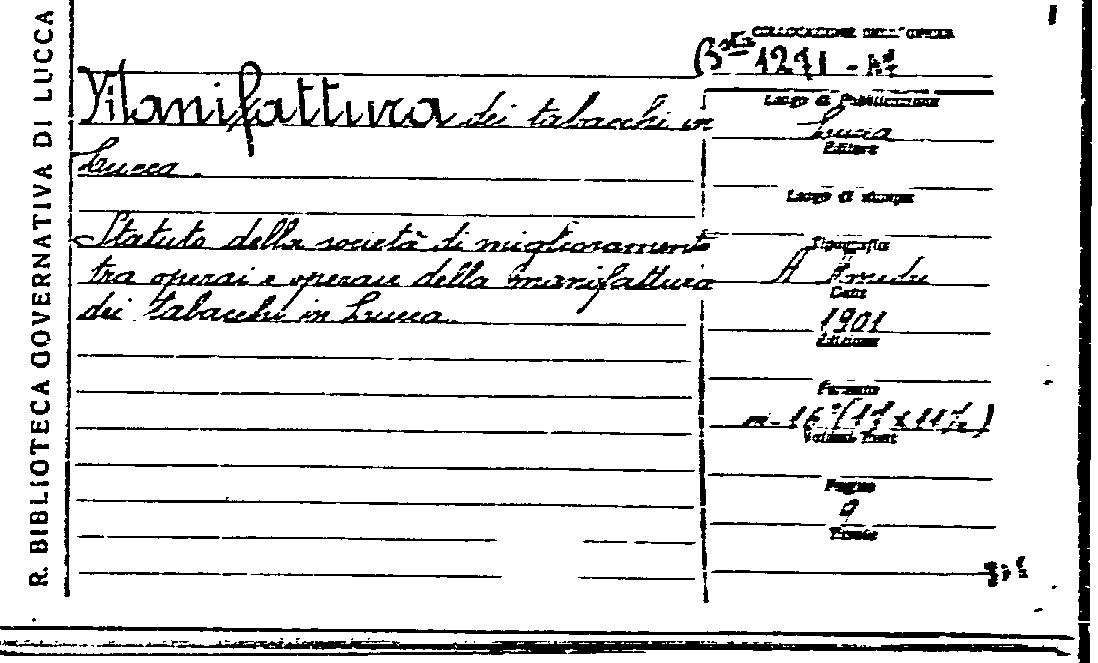 R. BIBLIOTECA GOVERNATIVA DI LUCCA
COLLOCAZIONE DELL'OPERA
Bta 1271 -
Manifattura dei tabacchi in
Lucca.
Statuto della società di miglioramento
tra operai e operaie della manifattura
dei tabacchi in Lucca.
Luogo di Pubblicazione
Lucca
Editore
Luogo di stampa
Tipografia
A Amedei
Data
1901
Edizione
Formato
in-16°
Volumi
Pagine
9
Tavole